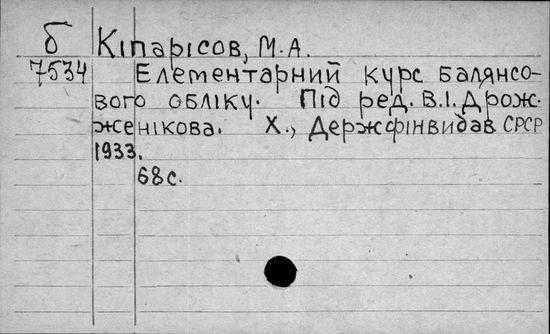 б Кіпарісов, М.А.
7534 Елементарний курс балянсо-
вого обліку. Під ред. В.І. Дрож-
женікова. Х., Держфінвидав СРСР
1933.
68с.